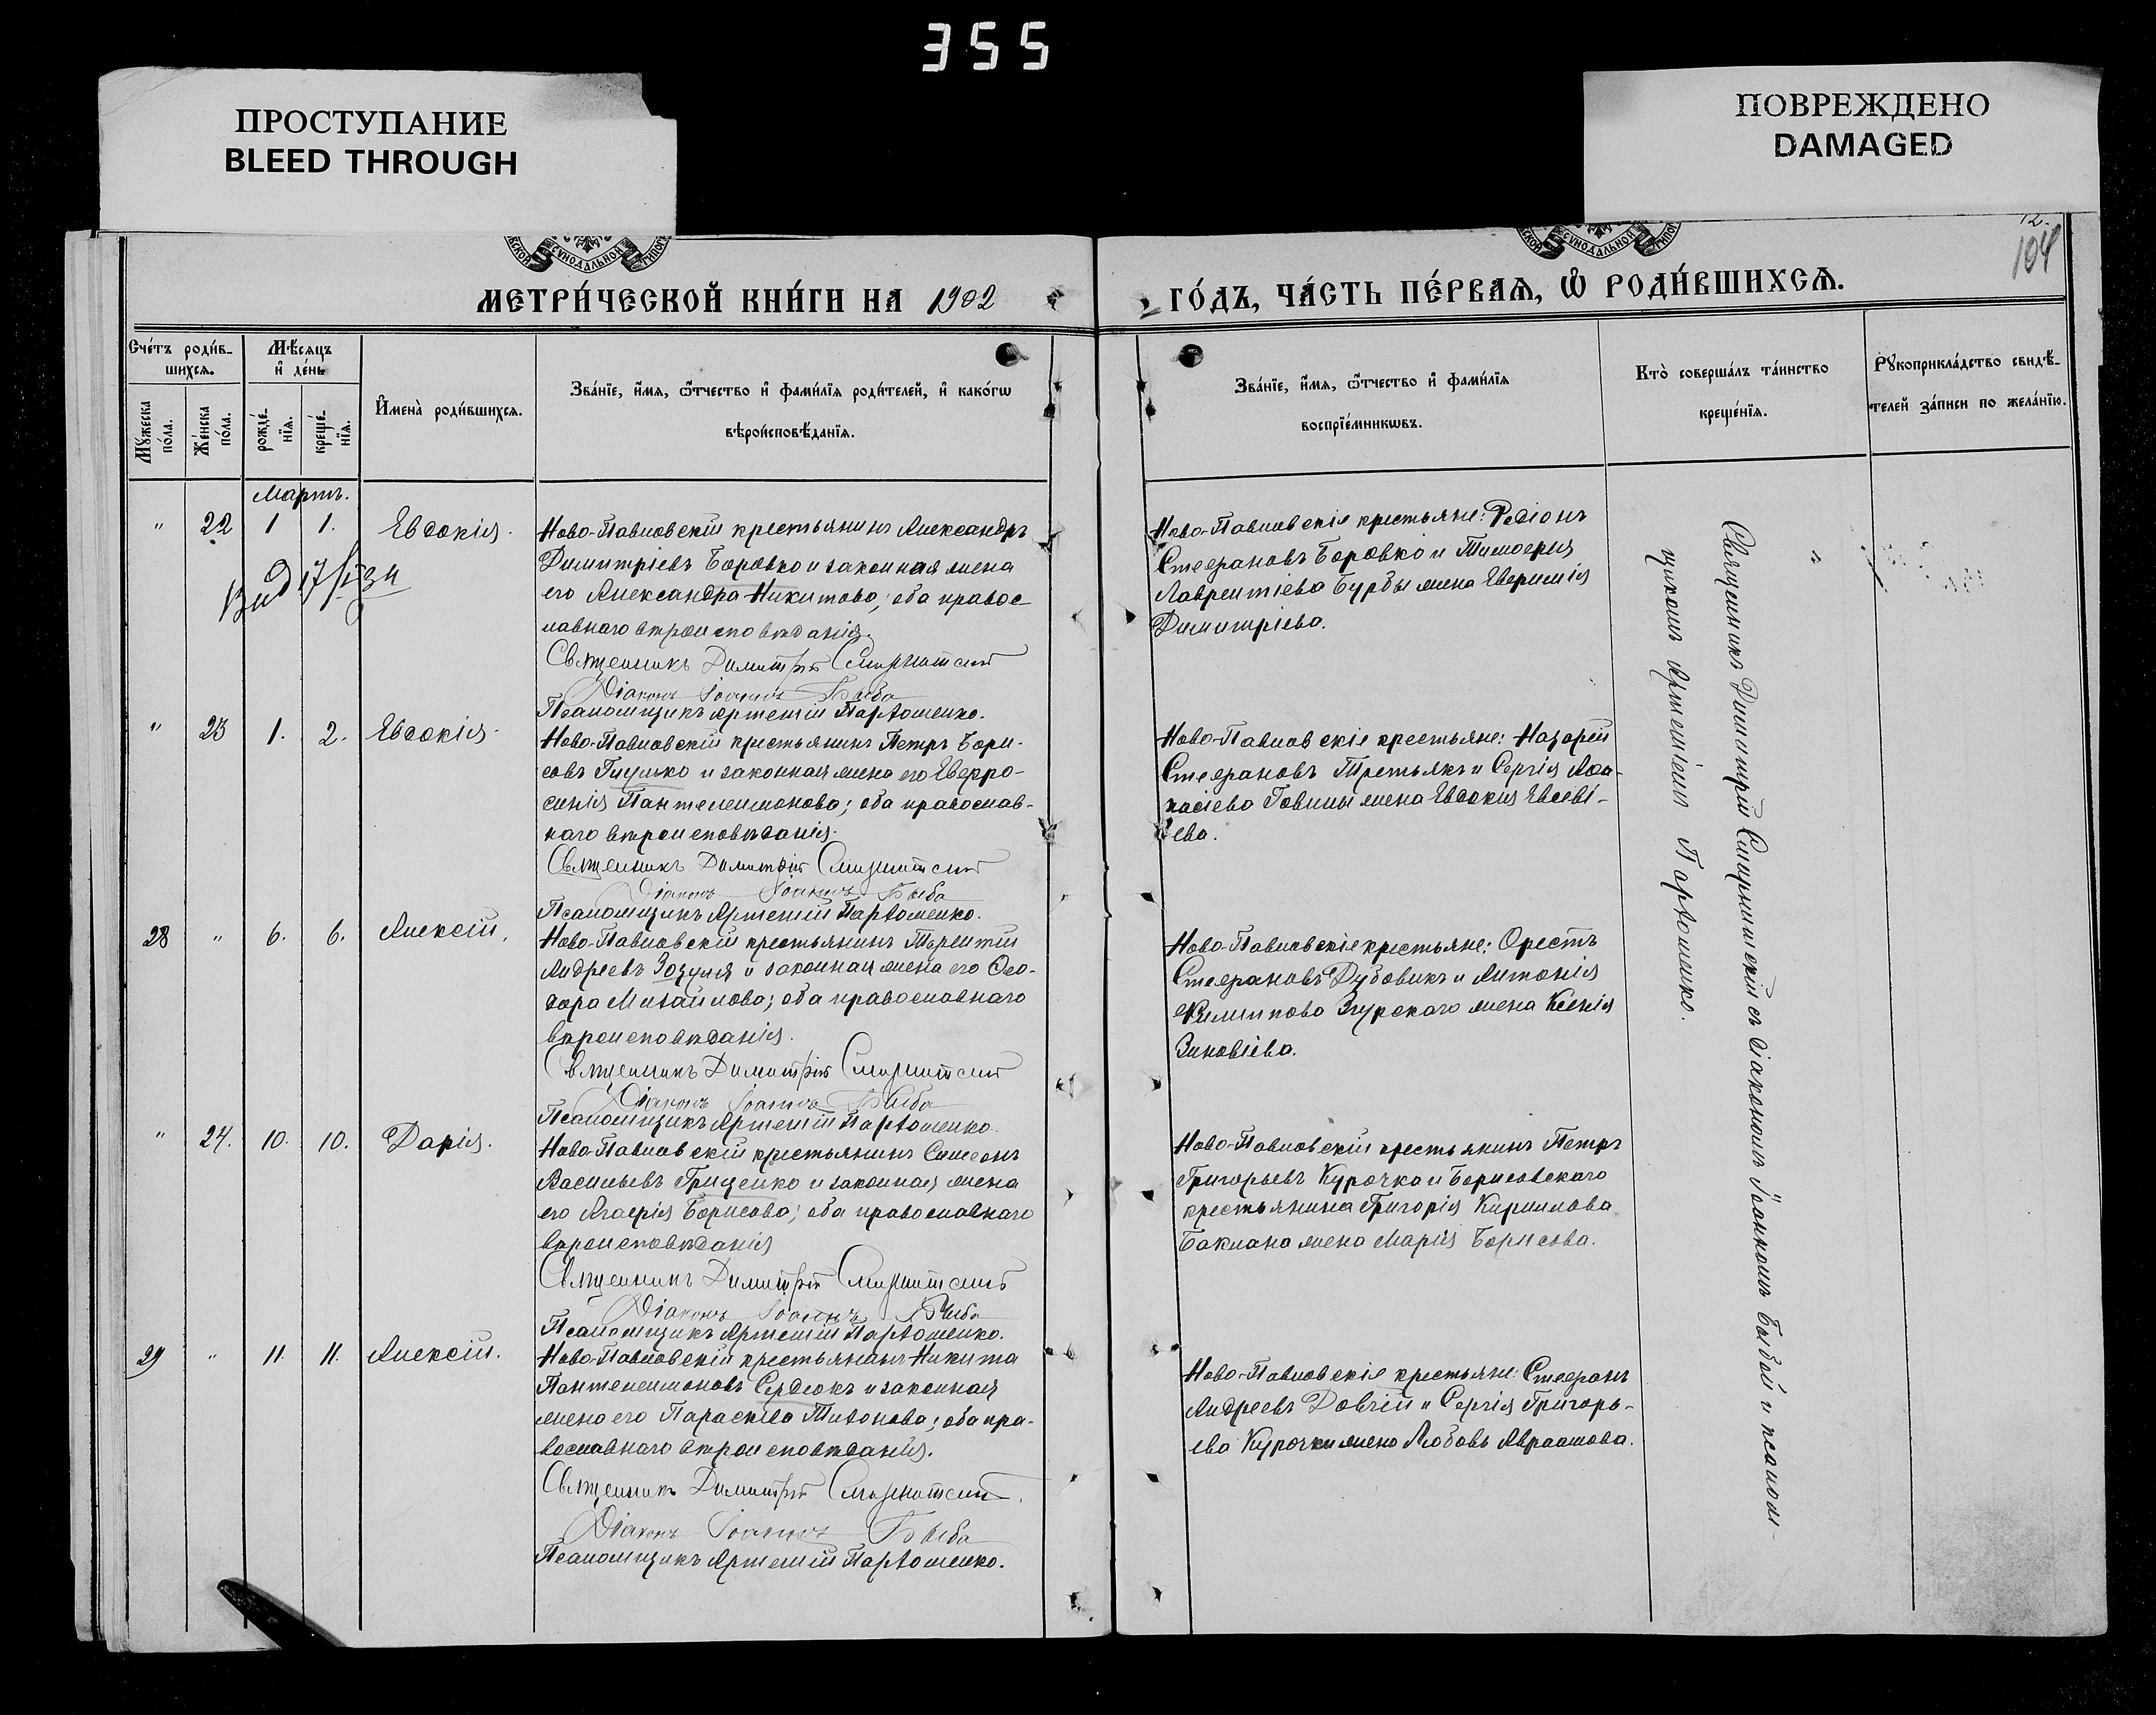 355
ПРОСТУПАНИЕ
BLEED THROUGH
ПОВРЕЖДЕНО
DAMAGED
12.
104
СѴНОДАЛЬНОЙ
СѴНОДАЛЬНОЙ
МЕТРИ́ЧЕСКОЙ КНИ́ГИ НА 1902
ГО́ДЪ, ЧА́СТЬ ПЕ́РВАѦ, Ѽ РОДИ́ВШИХСѦ.
Сче́тъ роди́в-
шихсѧ.
Мѣ́сѧцъ
и҆ де́нь
Мꙋ́жеска
по́ла.
Же́нска
по́ла.
рожде́-
нїѧ.
креще́-
нїѧ.
И҆мена̀ роди́вшихсѧ.
Зва́нїе, и҆́мѧ, ѻ҆́тчество и҆ фами́лїѧ роди́телей, и҆ како́гѡ
вѣроисповѣ́данїѧ.
Зва́нїе, и҆́мѧ, ѻ҆́тчество и҆ фами́лїѧ
воспрїе́мникѡвъ.
Кто̀ соверша́лъ та́инство
креще́нїѧ.
Рꙋкоприкла́дство свидѣ́-
телей за́писи по жела́нїю.
Мартъ.
" 22 1 1. Евдокія.
Ново-Павловскій крестьянинъ Александръ
Димитріевъ Боровко и законная жена
его Александра Никитова; оба правос
лавнаго вѣроисповѣданія.
Священникъ Димитрій Смирнитскій
Діаконъ Іоаннъ Быба
Псаломщикъ Артемій Пархоменко.
Ново-Павловскіе крестьяне: Родіонъ
Стефановъ Боровко и Тимофея
Лаврентіева Бурды жена Евфимія
Димитріева.
" 23 1. 2. Евдокія.
Ново-Павловскій крестьянинъ Петръ Бори-
совъ Глушко и законная жена его Евфро-
синія Пантелеимонова; оба православ-
наго вѣроисповѣданія.
Священникъ Димитрій Смирнитскій
Діаконъ Іоаннъ Быба
Псаломщикъ Артемій Пархоменко.
Ново-Павловскіе крестьяне: Назарій
Стефановъ Третьякъ и Сергія Афа-
насіева Говины жена Евдокія Евсеві-
ева.
28 " 6. 6. Алексій.
Ново-Павловскій крестьянинъ Терентій
Андреевъ Зозуля и законная жена его Ѳео-
дора Михайлова; оба православнаго
вѣроисповѣданія.
Священникъ Димитрій Смирнитскій
Діаконъ Іоаннъ Быба
Псаломщикъ Артемій Пархоменко.
Ново-Павловскіе крестьяне: Орестъ
Стефановъ Дубовикъ и Антонія
Филиппова Згурскаго жена Ксенія
Зиновіева.
" 24. 10. 10. Дарія.
Ново-Павловскій крестьянинъ Симеонъ
Васильевъ Гриценко и законная жена
его Агафія Борисова; оба православнаго
вѣроисповѣданія
Священникъ Димитрій Смирнитскій
Діаконъ Іоаннъ Быба
Псаломщикъ Артемій Пархоменко.
Ново-Павловскій крестьянинъ Петръ
Григорьевъ Курочка и Борисовскаго
крестьянина Григорія Кириллова
Баклана жена Марія Борисова.
29 " 11. 11. Алексій.
Ново-Павловскій крестьянинъ Никита
Пантелеимоновъ Сердюкъ и законная
жена его Параскева Тихонова; оба пра-
вославнаго вѣроисповѣданія.
Священникъ Димитрій Смирнитскій
Діаконъ Іоаннъ Быба
Псаломщикъ Артемій Пархоменко.
Ново-Павловскіе крестьяне: Стефанъ
Андреевъ Довгій и Сергія Григорь-
ева Курочки жена Любовь Авраамова.
Священникъ Димитрій Смирнитскій съ діакономъ Іоанномъ Быбой и псалом-
щикомъ Артеміемъ Пархоменко.